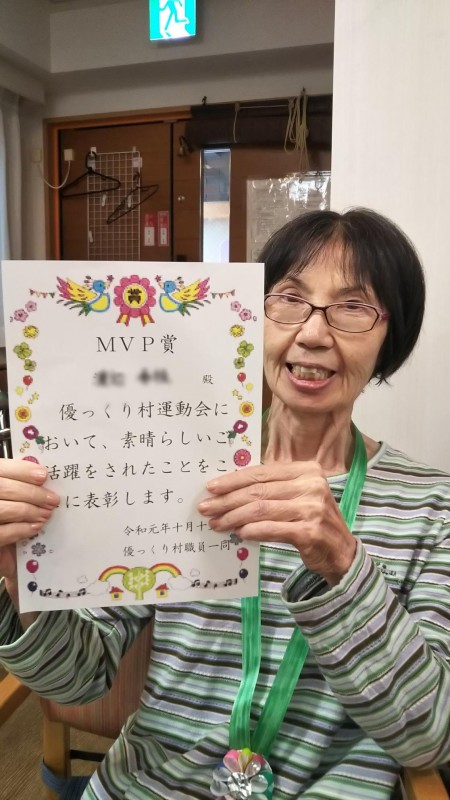 賞
MVP賞
殿
優っくり村運動会に
おいて、素晴らしいご
活躍をされたことをこ
に表彰します。
令和元年十月十
優っくり村職員一同